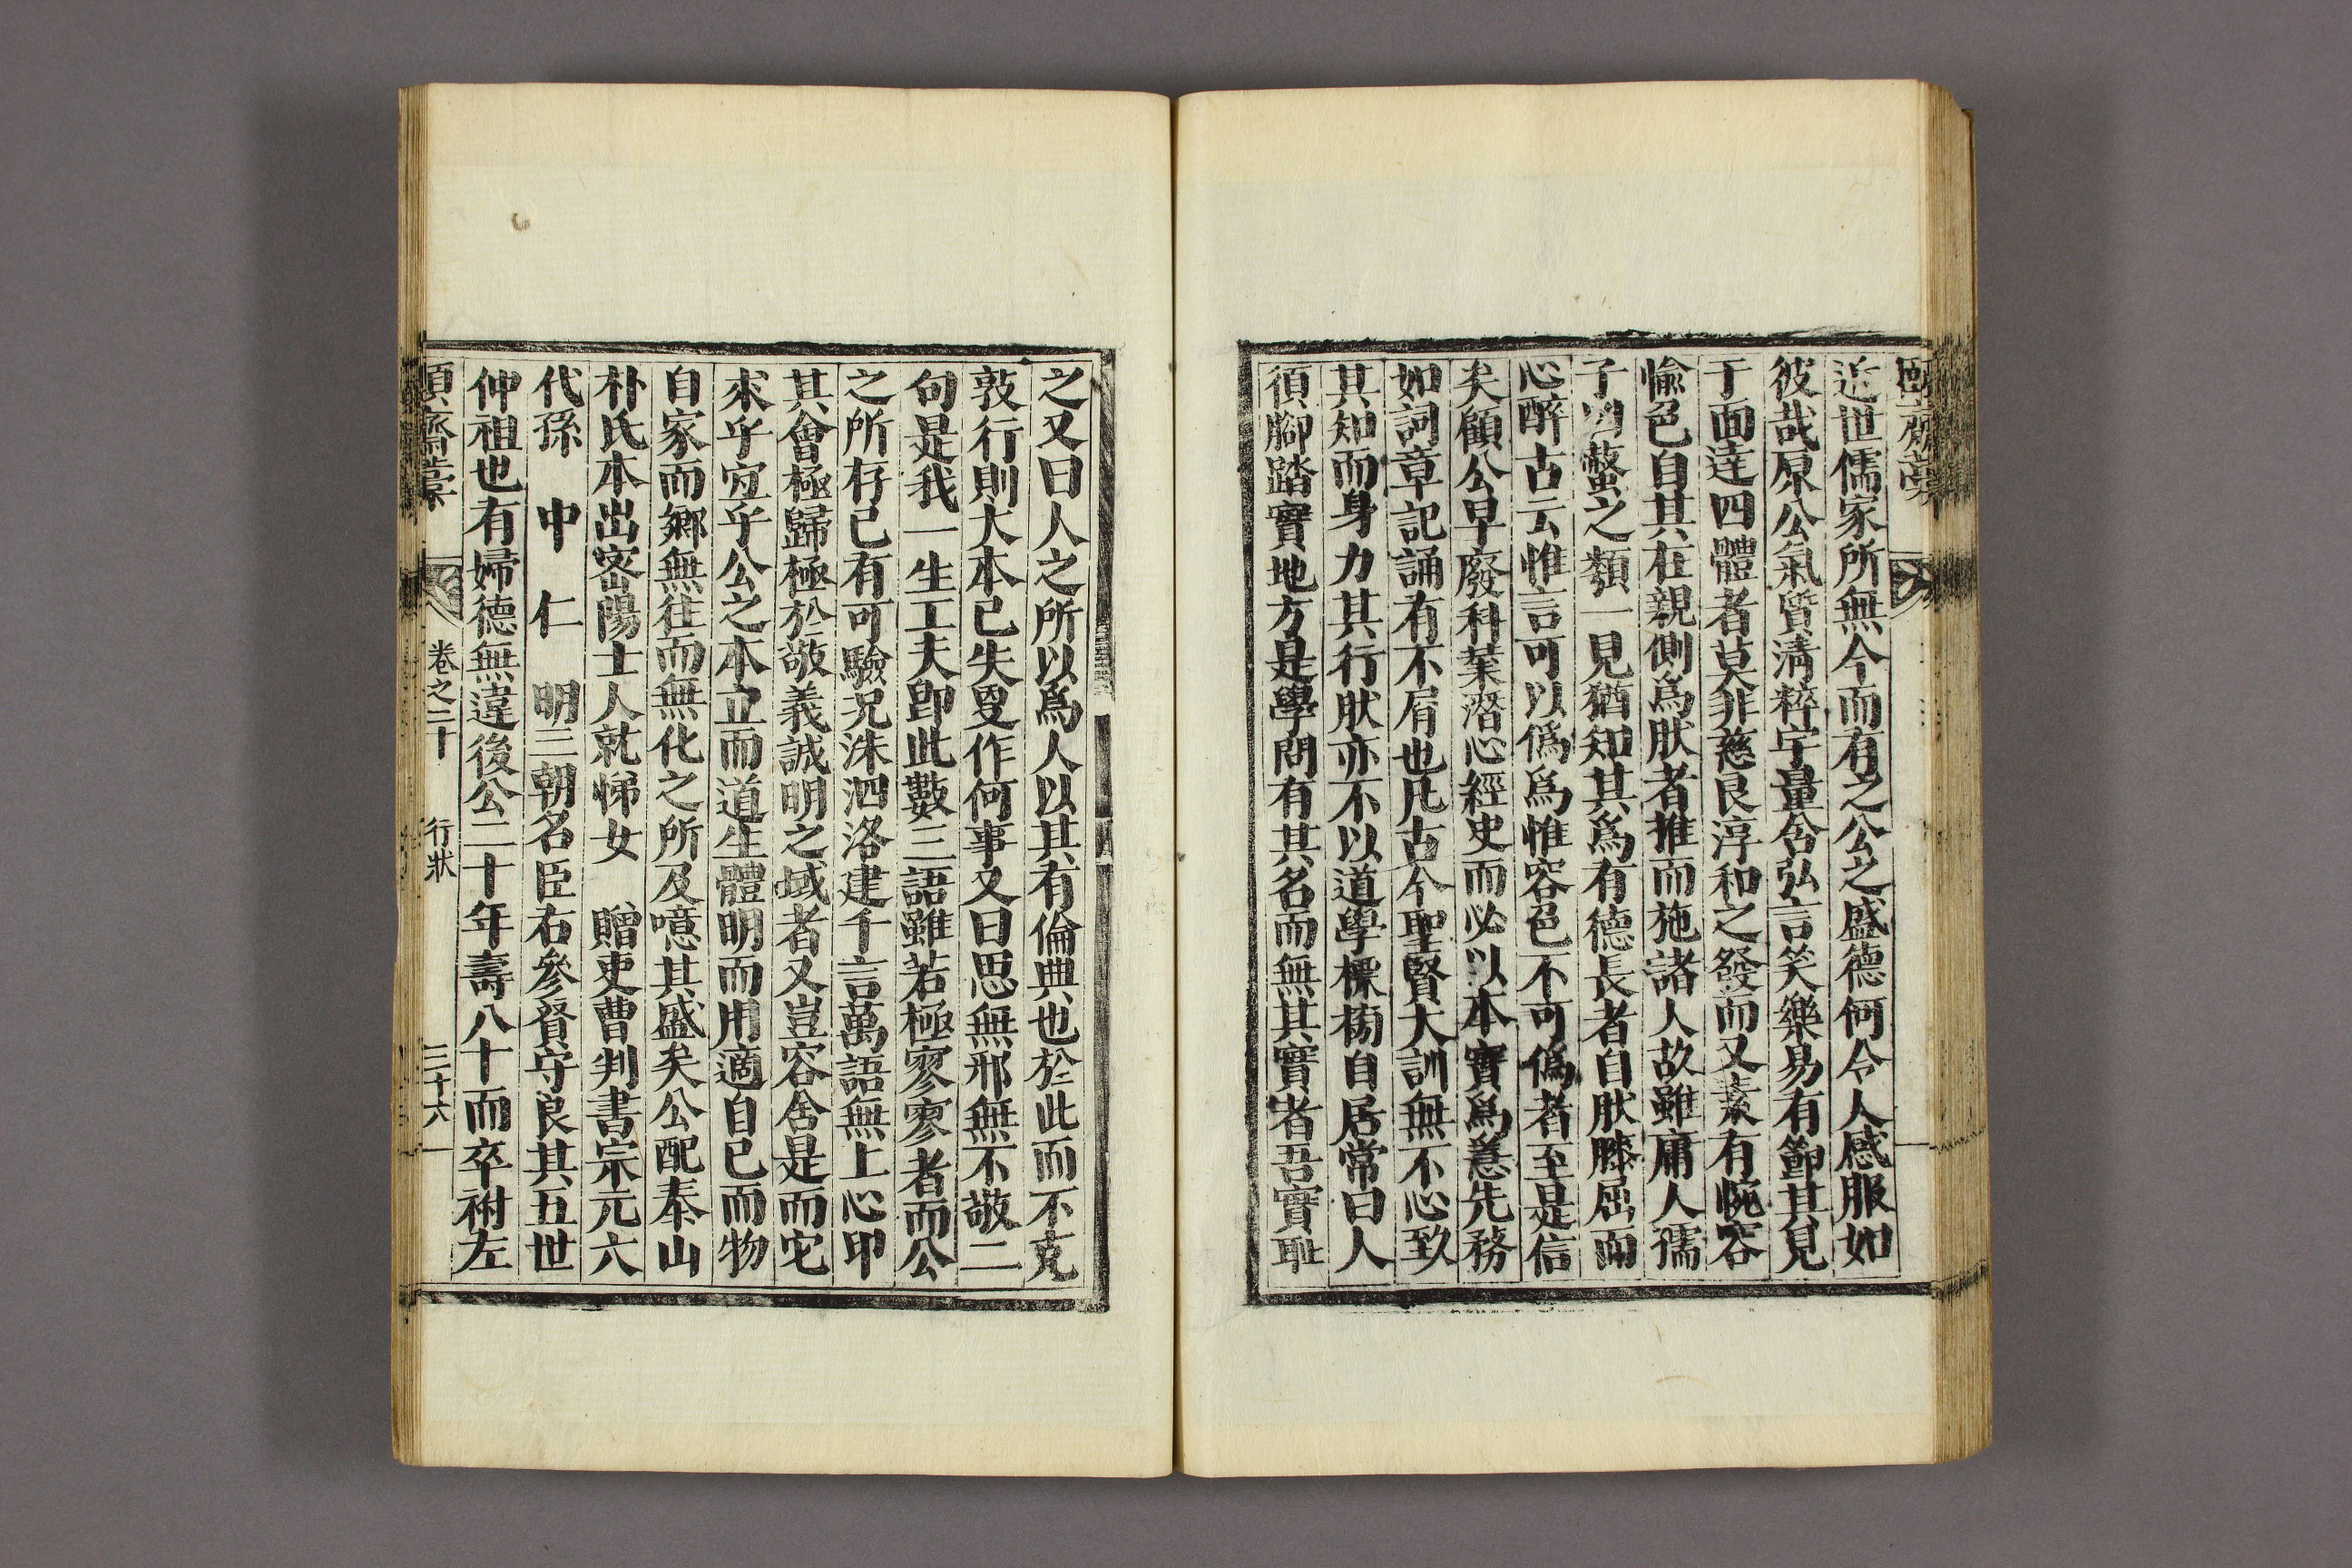 近世儒家所無今而有之公之盛德何令人感服如
彼哉原公氣質淸粹宇量含弘言笑樂易有節其見
于面達四體者莫非慈良淳和之發而又素有惋容
愉色自其在親側爲肰者推而施諸人故雖庸人孺
子凶螫之類一見猶知其爲有德長者自肰膝屈而
心醉古云惟言可以僞爲惟容色不可僞者至是信
矣顧公早廢科業潛心經史而必以本實爲急先務
如詞章記誦有不屑也凡古今聖賢大訓無不心致
其知而身力其行肰亦不以道學標榜自居常曰人
須腳踏實地方是學問有其名而無其實者吾實耻
之又曰人之所以爲人以其有倫典也於此而不克
敦行則大本已失更作何事又曰思無邪無不敬二
句是我一生工夫卽此數三語雖若極寥寥者而公
之所存已有可驗況洙泗洛建千言萬語無上心印
其會極歸極於敬義誠明之域者又豈容舍是而它
求乎宜乎公之本立而道生體明而用適自己而物
自家而鄉無往而無化之所及噫其盛矣公配奉山
朴氏本出密陽士人就悌女 贈吏曹判書宗元六
代孫 中 仁 明三朝名臣右參贊守良其五世
仲祖也有婦德無違後公二十年壽八十而卒祔左
齋藁 卷之二十 行狀 三十六